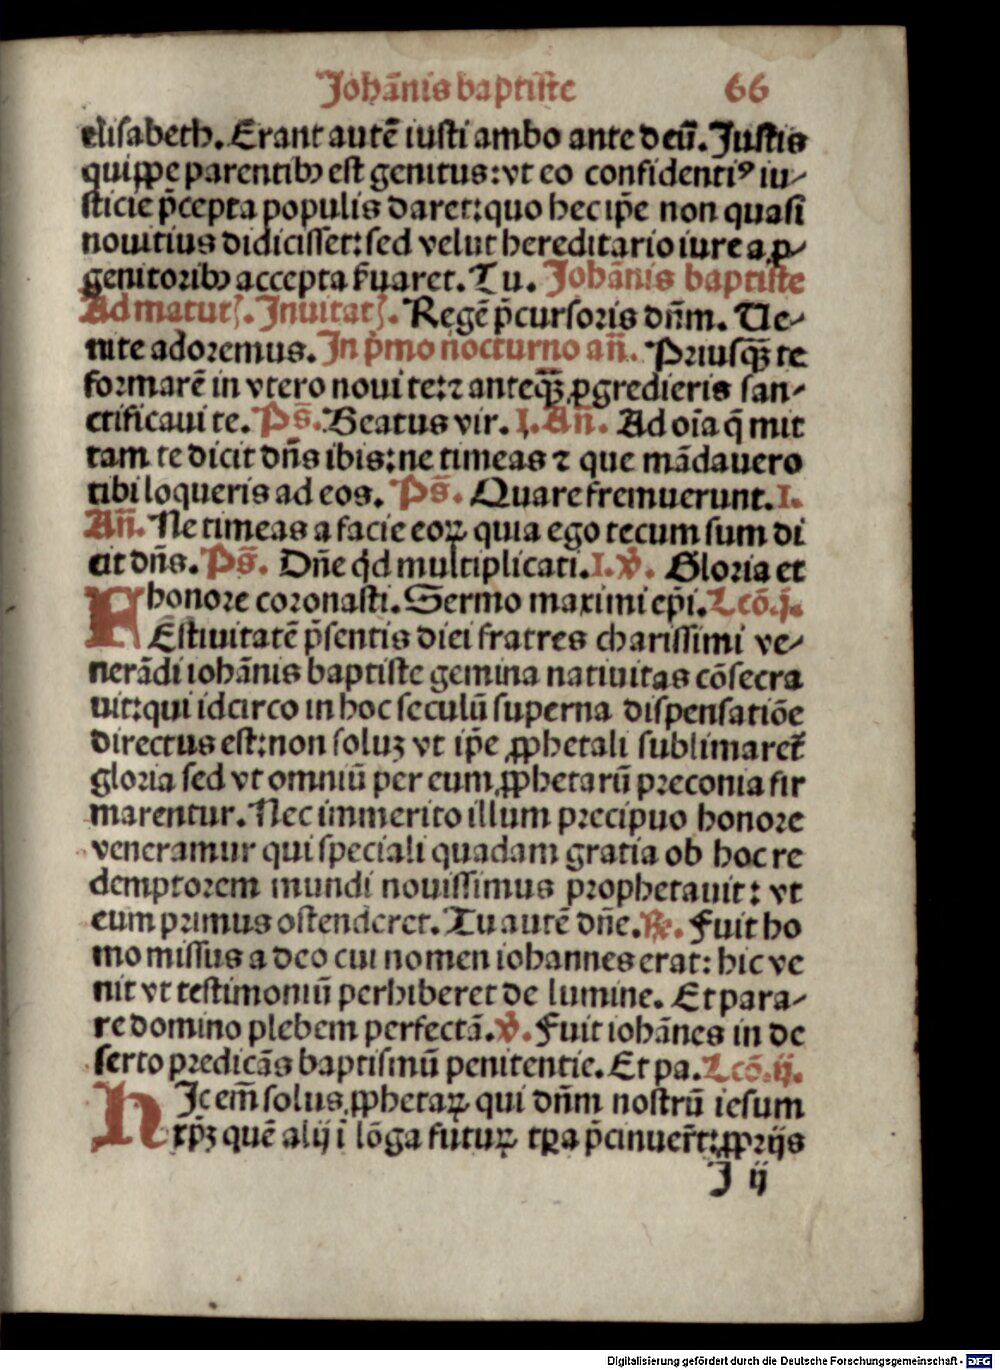 Johānis baptiste 66
elisabeth. Erant autē iusti ambo ante deū. Justis
quippe parentibꝫ est genitus: vt eo confidentiꝰ iu-
sticie p̄cepta populis daret: quo hec ip̄e non quasi
nouitius didicisset: sed velut hereditario iure a ꝓ-
genitoribꝫ accepta ẜuaret. Tu. Johānis baptiste
Ad matutꝭ. Inuitatꝭ. Regē p̄cursoris dn̄m. Ue-
nite adoremus. In p̄mo nocturno an̄. Priusqꝫ te
formarē in vtero noui te: ⁊ anteqꝫ ꝓgredieris san-
ctificaui te. Ps̄. Beatus vir. I. An̄. Ad oīa q̄ mit
tam te dicit dn̄s ibis: ne timeas ⁊ que mādauero
tibi loqueris ad eos. Ps̄. Quare fremuerunt. I.
An̄. Ne timeas a facie eoꝝ quia ego tecum sum di
cit dn̄s. Ps̄. Dn̄e qͥd multiplicati. I. ℣. Gloria et
honore coronasti. Sermo maximi ep̄i. Lcō. j.
FEstiuitatē p̄sentis diei fratres charissimi ve-
nerādi iohānis baptiste gemina natiuitas cōsecra
uit: qui idcirco in hoc seculū superna dispensatiōe
directus est: non soluꝫ vt ip̄e ꝓphetali sublimaret̄
gloria sed vt omniū per eum ꝓphetarū preconia fir
marentur. Nec immerito illum precipuo honore
veneramur qui speciali quadam gratia ob hoc re
demptorem mundi nouissimus prophetauit: vt
eum primus ostenderet. Tu autē dn̄e. ℟. Fuit ho
mo missus a deo cui nomen iohannes erat: hic ve
nit vt testimoniū perhiberet de lumine. Et para-
re domino plebem perfectā. ℣. Fuit iohānes in de
serto predicās baptismū penitentie. Et pa. Lcō. ij.
HIc em̄ solus ꝓphetaꝝ qui dn̄m nostrū iesum
xp̄ꝫ quē alij ī lōga futuꝝ tꝑa p̄cinuer̄t: ꝓprijs
J ij
Digitalisierung gefördert durch die Deutsche Forschungsgemeinschaft - DFG